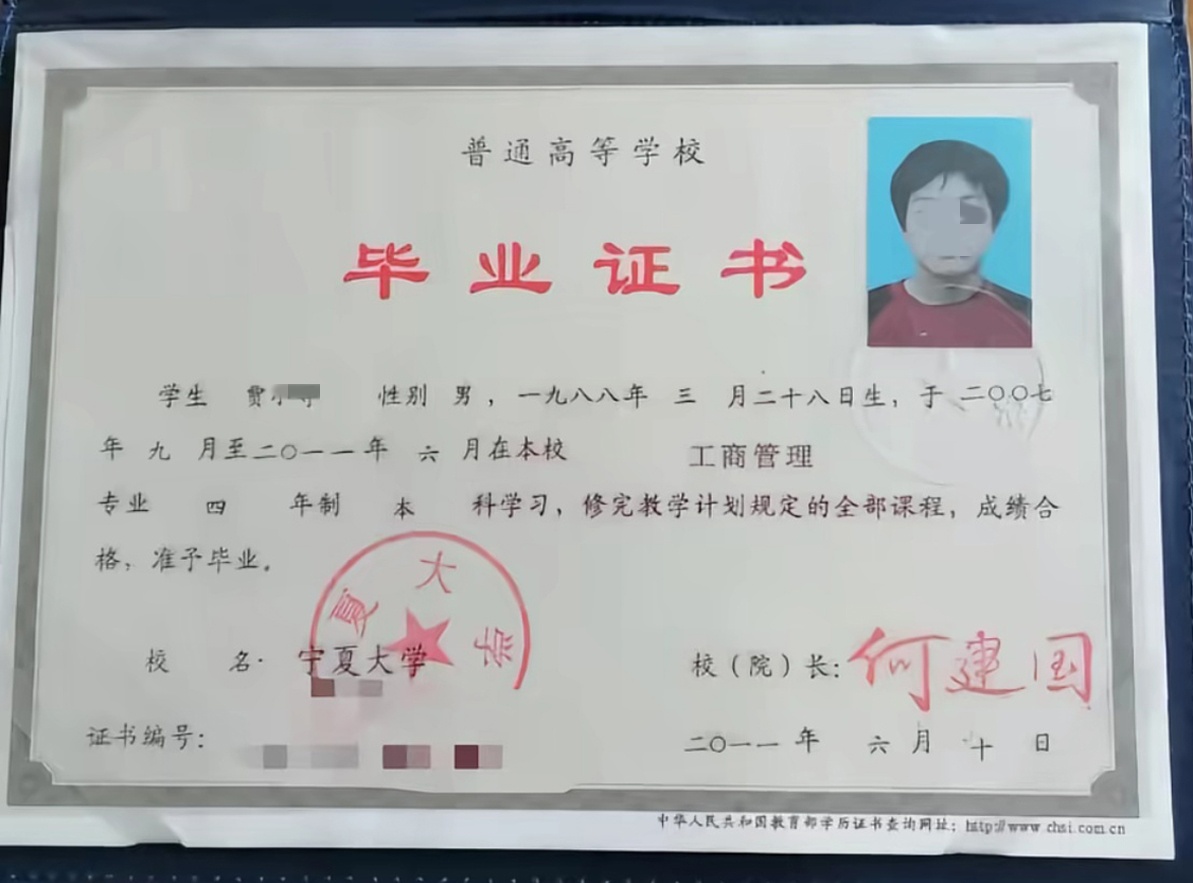 普通高等学校
毕业证书
学生 贾 性别 男，一九八八年 三 月二十八日生，于 二〇〇七
年 九 月至二〇一一年 六 月在本校 工商管理
专业 四 年制 本 科学习，修完教学计划规定的全部课程，成绩合
格，准予毕业。
夏大学
校 名： 宁夏大学
校（院）长：何建国
证书编号：
二〇一一 年 六 月 十 日
中华人民共和国教育部学历证书查询网址：http://www.chsi.com.cn